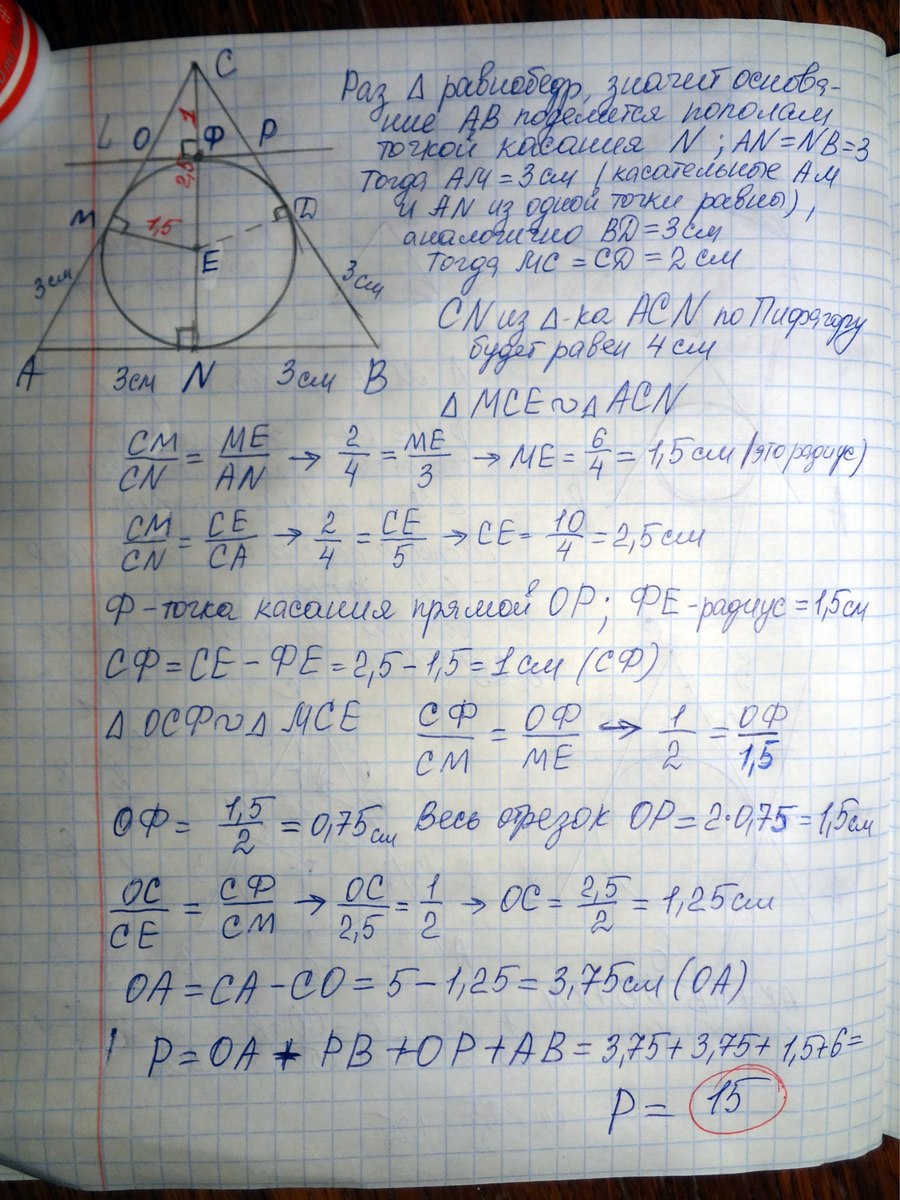 C
L O Ф P
1
2,5
M
D
1,5
E
3см
3см
A 3см N 3см B
Раз Δ равнобедр, значит основа-
ние AB поделится пополам
точкой касания N; AN=NB=3
Тогда AM=3см (касательные AM
и AN из одной точки равны),
аналогично BD=3см
Тогда MC=CD=2см
CN из Δ-ка ACN по Пифагору
будет равен 4см
Δ MCE ∾ Δ ACN
CM/CN = ME/AN → 2/4 = ME/3 → ME = 6/4 = 1,5см (это радиус)
CM/CN = CE/CA → 2/4 = CE/5 → CE = 10/4 = 2,5см
Ф-точка касания прямой OP; ФE-радиус=1,5см
CФ=CE-ФE=2,5-1,5=1см (CФ)
Δ OCФ ∾ Δ MCE CФ/CM = OФ/ME → 1/2 = OФ/1,5
OФ = 1,5/2 = 0,75см Весь отрезок OP=2·0,75=1,5см
OC/CE = CФ/CM → OC/2,5 = 1/2 → OC = 2,5/2 = 1,25см
OA=CA-CO=5-1,25=3,75см (OA)
P=OA+PB+OP+AB=3,75+3,75+1,5+6=
P= 15